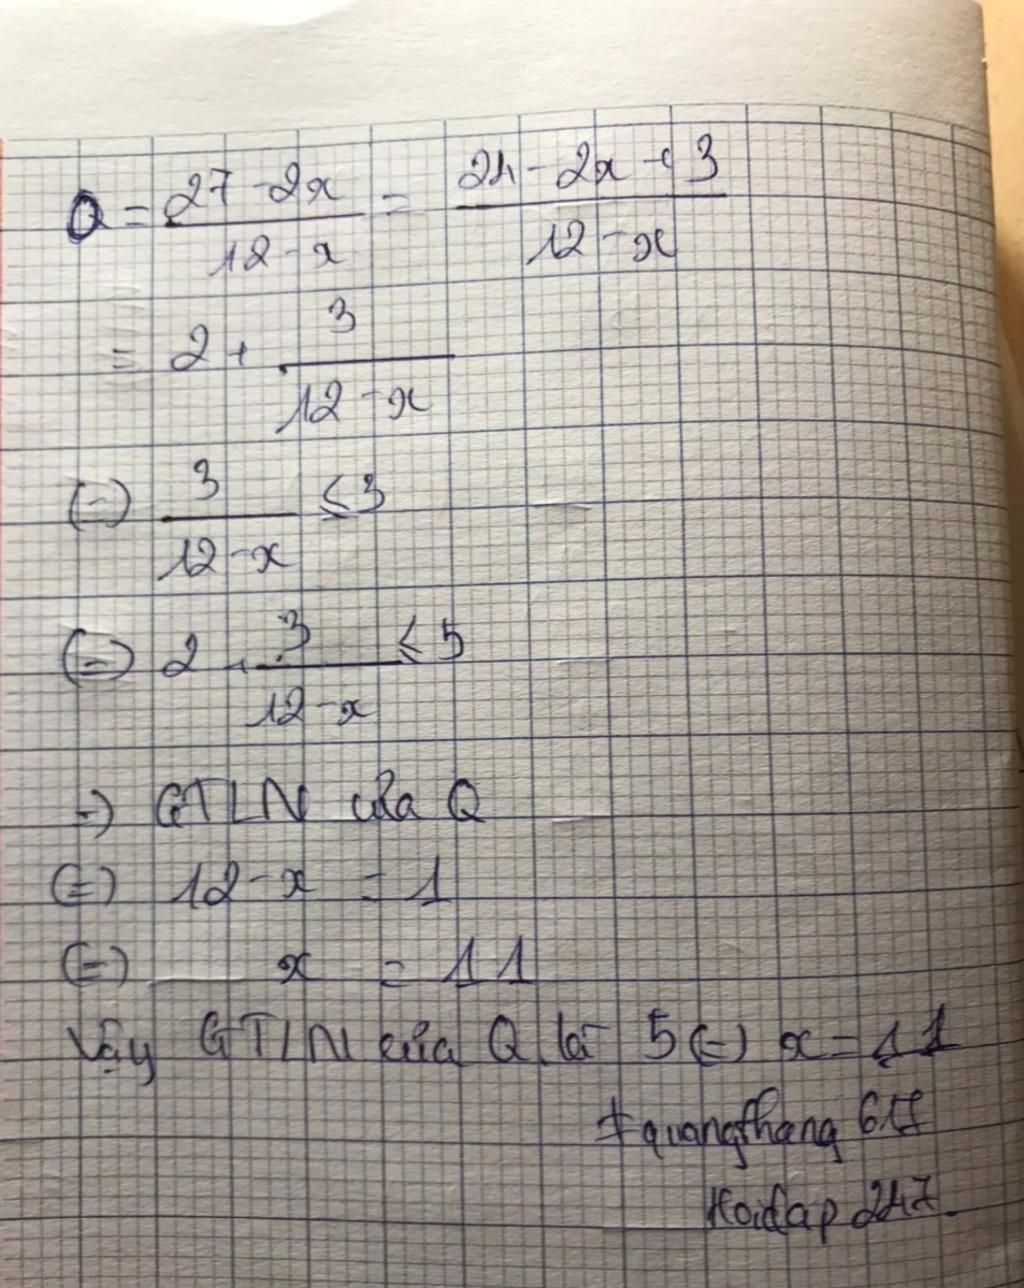 Q = \frac{27 - 2x}{12 - x} = \frac{24 - 2x + 3}{12 - x}
= 2 + \frac{3}{12 - x}
(=) \frac{3}{12 - x} ≤ 3
(=) 2 + \frac{3}{12 - x} ≤ 5
=) GTLN của Q
(=) 12 - x = 1
(=) x = 11
Vậy GTLN của Q là 5 (=) x = 11
Hoidap 247.